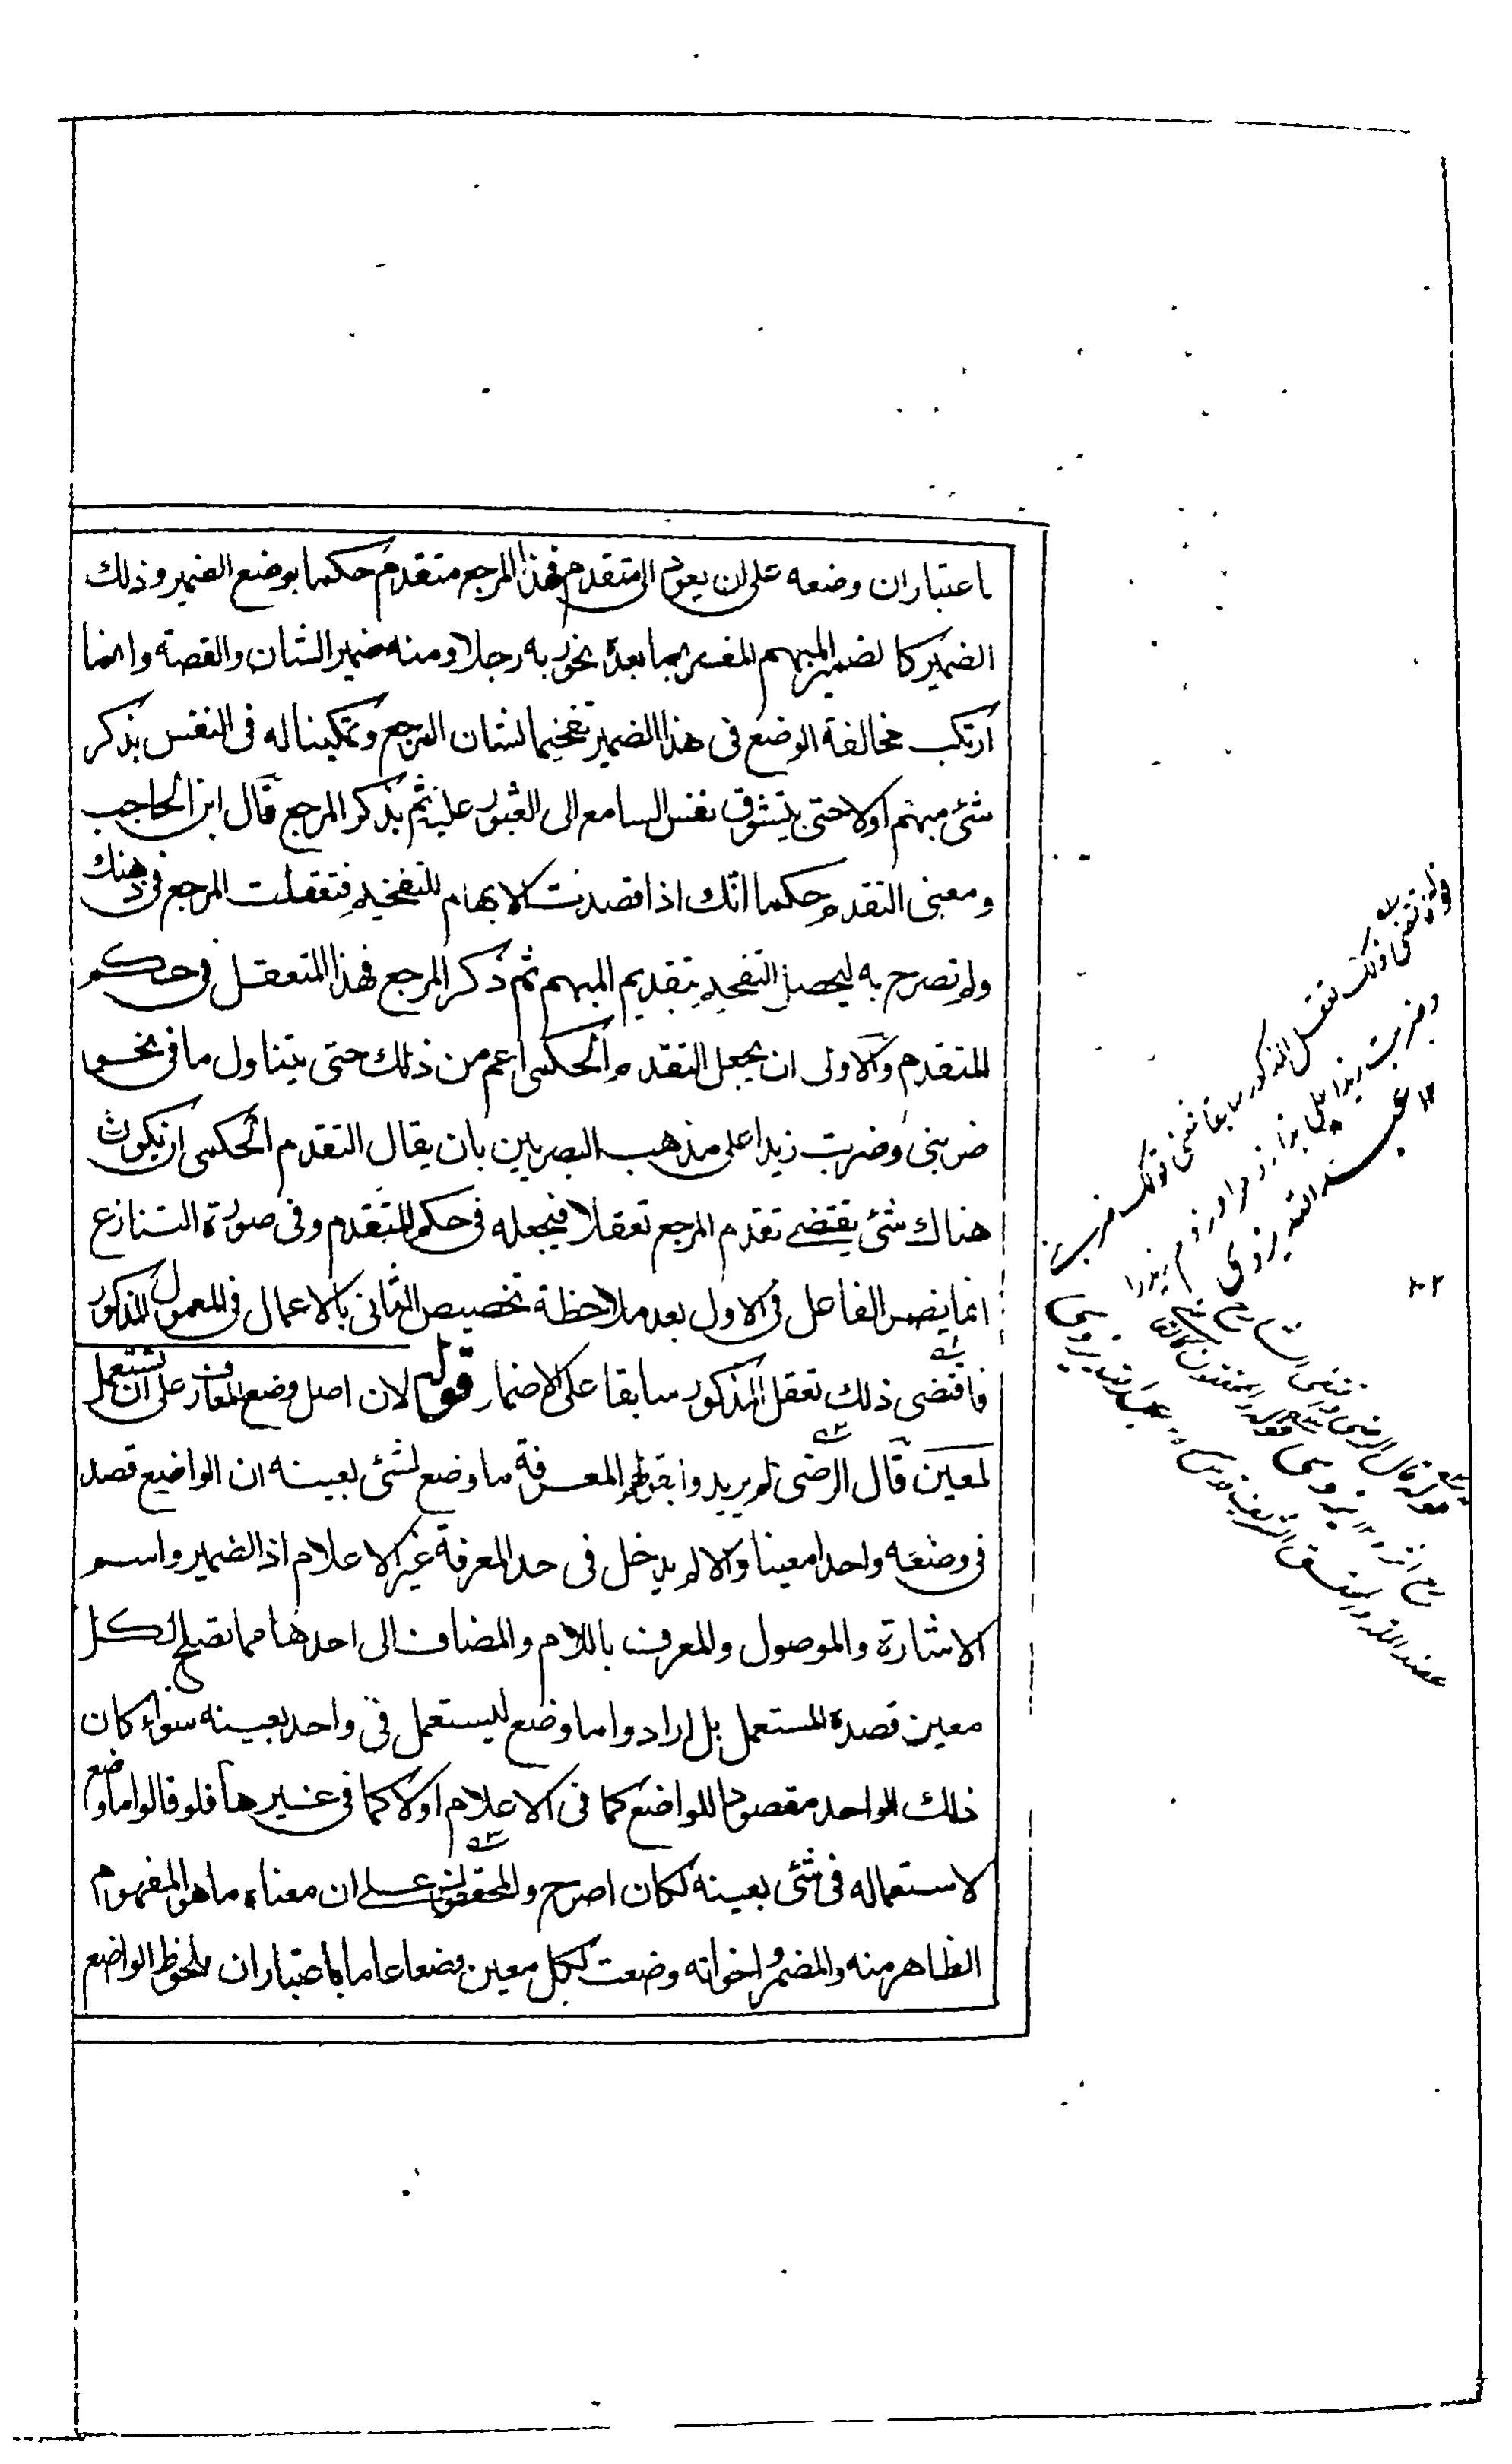 باعتبار ان وضعه على ان يعود الى متقدم فهذا المرجع متقدم حكما بوضع الضمير وذلك
الضمير كالضمير المبهم المفسر بما بعده نحو ربه رجلا ومنه ضمير الشان والقصة وانما
ارتكب مخالفة الوضع فى هذا الضمير تفخيما لشان المرجع وتمكينا له فى النفس بذكر
شئ مبهم اولا حتى يتشوق نفس السامع الى العثور عليه ثم بذكر المرجع قال ابن الحاجب
ومعنى التقدم حكما انك اذا قصدت الابهام للتفخيم فتعقلت المرجع فى ذهنك
ولم تصرح به ليحصل التفخيم بتقديم المبهم ثم ذكر المرجع فهذا المتعقل فى حكم
المتقدم والاولى ان يجعل التقدم الحكمى اعم من ذلك حتى يتناول ما فى نحو
ضربنى وضربت زيدا على مذهب البصريين بان يقال التقدم الحكمى ان يكون
هناك شئ يقتضى تقدم المرجع تعقلا فيجعله فى حكم المتقدم وفى صورة التنازع
انما يضمر الفاعل فى الاول بعد ملاحظة تخصيص الثانى بالاعمال فى المعمول المذكور
فاقتضى ذلك تعقل المذكور سابقا على الاضمار قوله لان اصل وضع المعارف على ان تستعمل
لمعين قال الرضى لم يريدوا بقولهم المعرفة ما وضع لشئ بعينه ان الواضع قصد
فى وضعه واحدا معينا والا لم يدخل فى حد المعرفة غير الاعلام اذ الضمير واسم
الاشارة والموصول والمعرف باللام والمضاف الى احدها مما تصلح لكل
معين قصده المستعمل بل ارادوا ما وضع ليستعمل فى واحد بعينه سواء كان
ذلك الواحد مقصودا للواضع كما فى الاعلام اولا كما فى غيرها فلو قالوا ما وضع
لاستعماله فى شئ بعينه لكان اصرح والمحققون على ان معناه ما هو المفهوم
الظاهر منه والمضمر واخواته وضعت لكل معين وضعا عاما باعتبار ان ملحوظ الواضع
قوله فاقتضى ذلك تعقل المذكور سابقا فمعنى قولك ضربنى
وضربت زيدا
قوله قال الرضى
قوله والمحققون